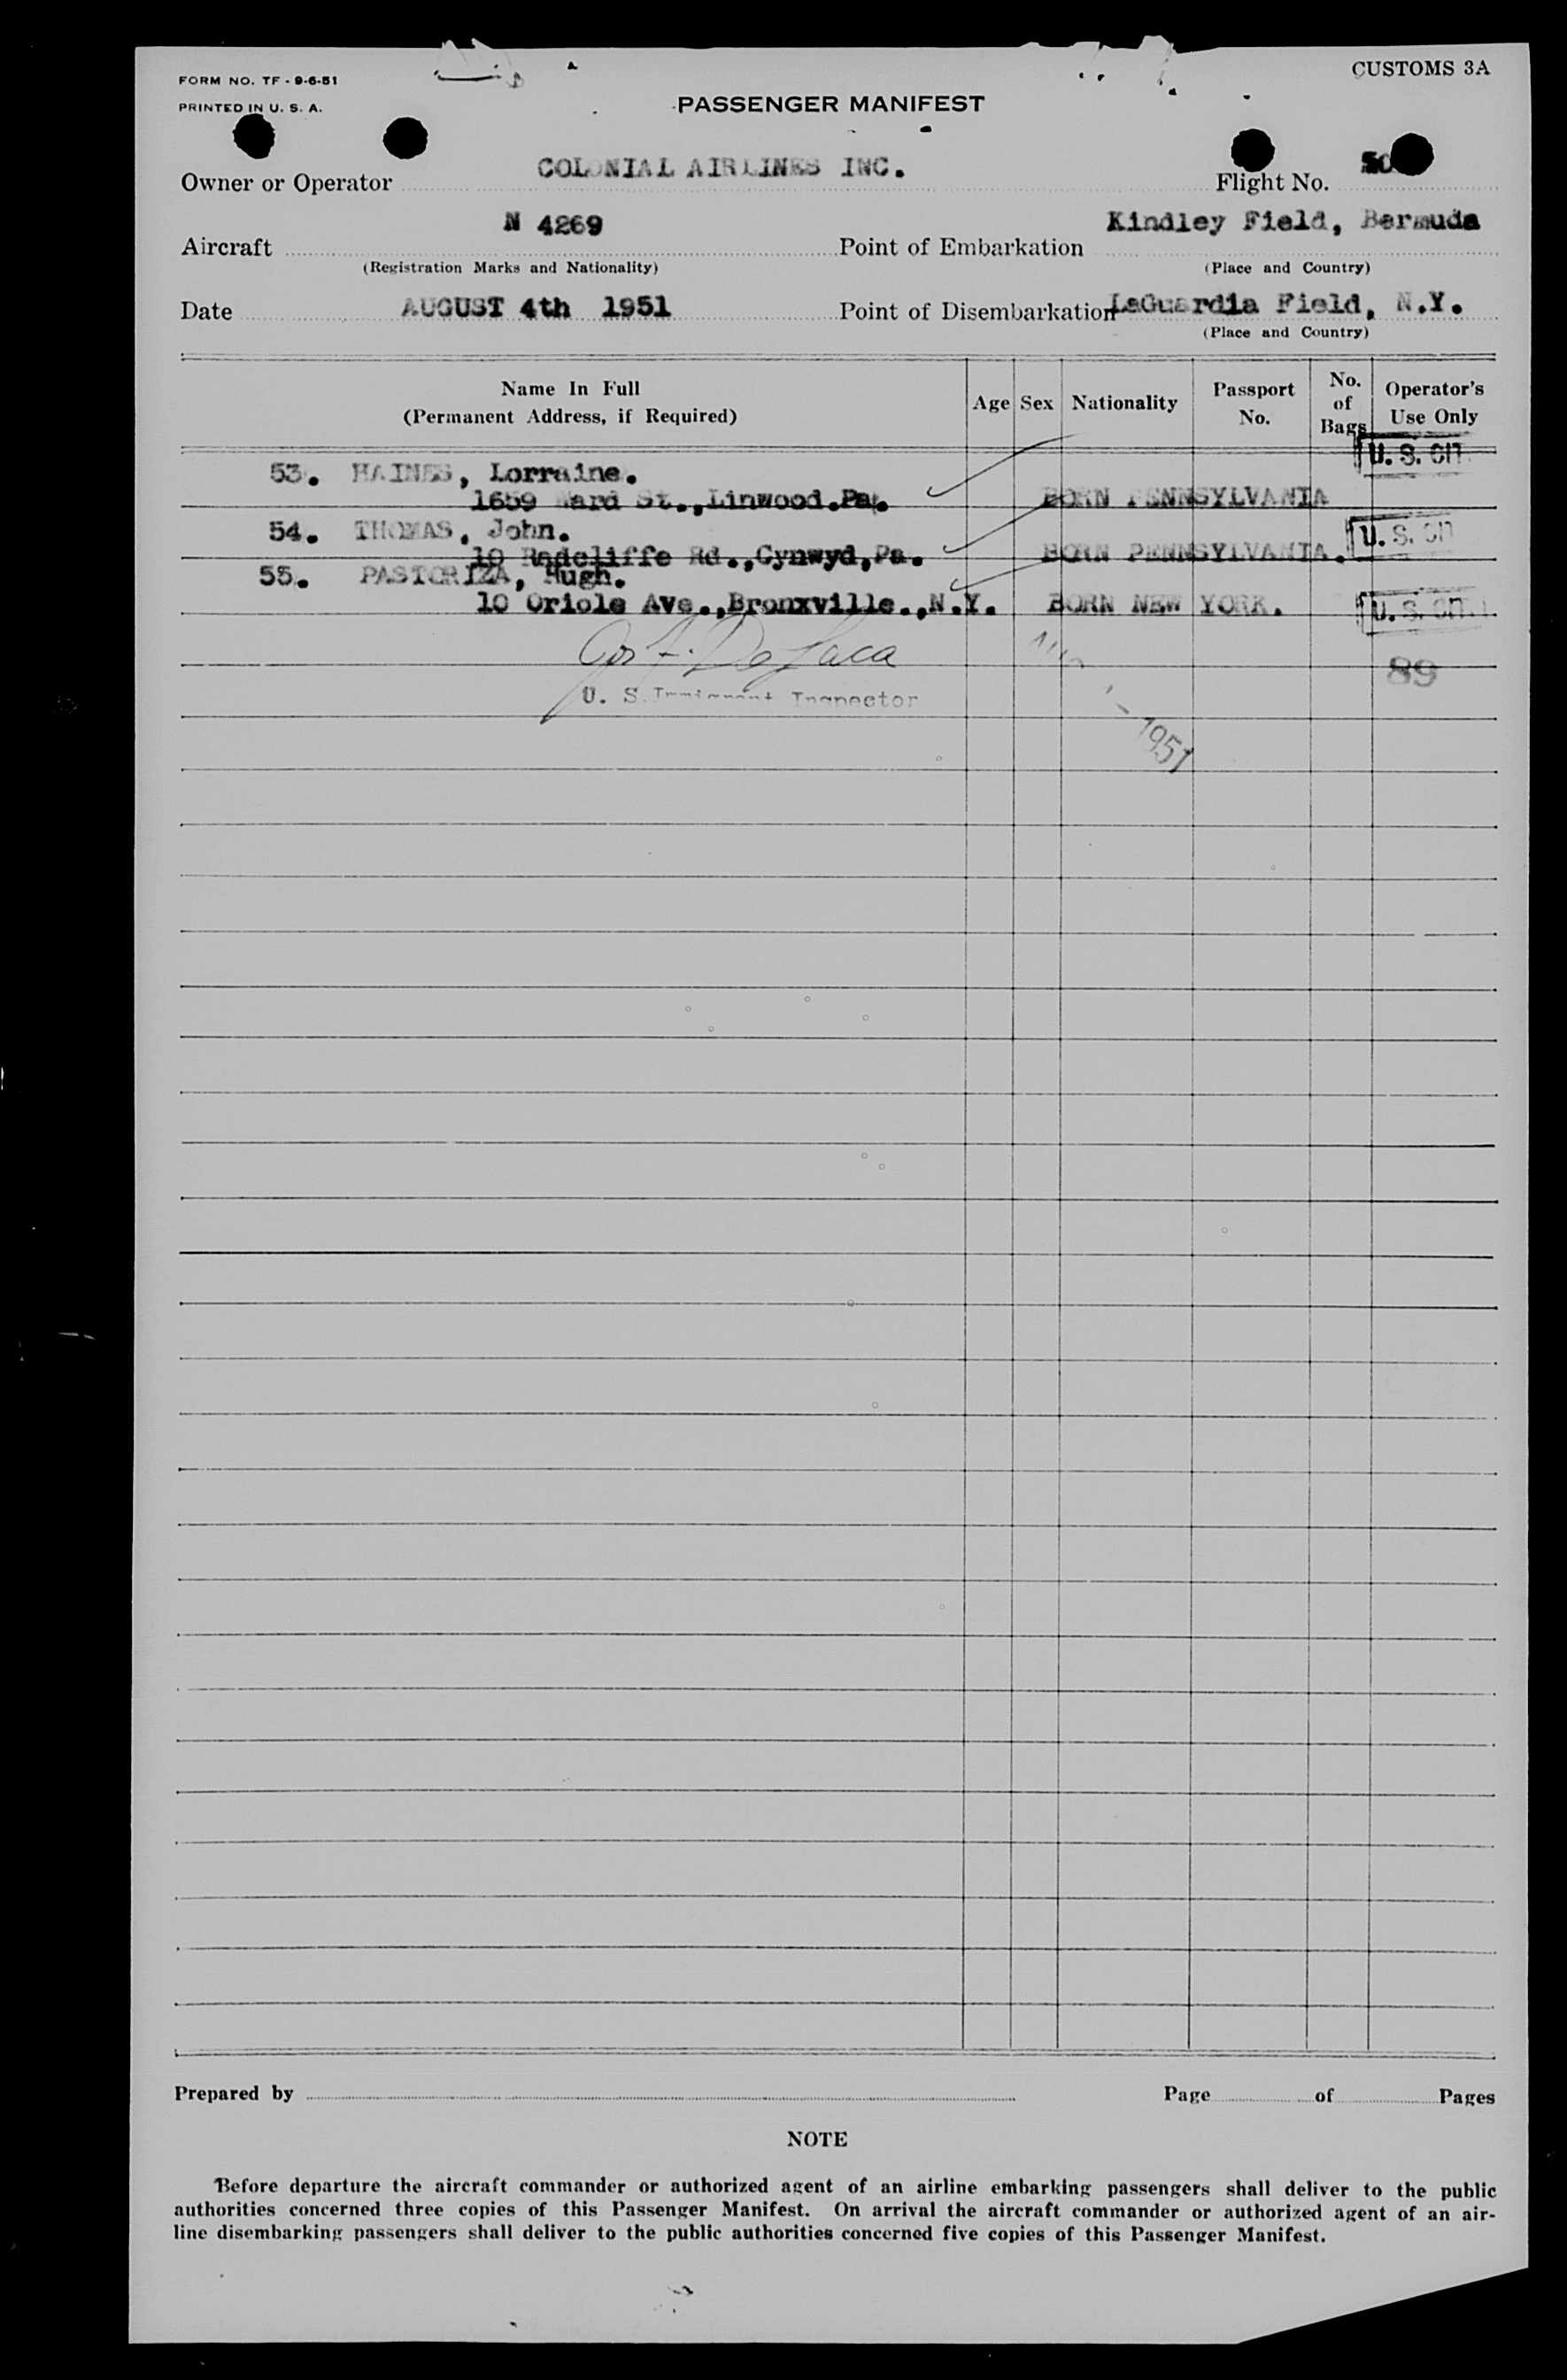 FORM NO. TF - 9-6-51
PRINTED IN U. S. A.
CUSTOMS 3A
PASSENGER MANIFEST
Owner or Operator COLONIAL AIRLINES INC. Flight No.
Aircraft N 4269 Point of Embarkation Kindley Field, Bermuda
(Registration Marks and Nationality) (Place and Country)
Date AUGUST 4th 1951 Point of Disembarkation LaGuardia Field, N.Y.
(Place and Country)
Name In Full
(Permanent Address, if Required)
Age Sex Nationality Passport No. No. of Bags Operator's Use Only
53. HAINES, Lorraine. U. S. CIT.
1659 Ward St.,Linwood.Pa. BORN PENNSYLVANIA
54. THOMAS, John. U. S. CIT
10 Radcliffe Rd.,Cynwyd,Pa. BORN PENNSYLVANIA.
55. PASTORIZA, Hugh.
10 Oriole Ave.,Bronxville.,N.Y. BORN NEW YORK. U. S. CIT.
89
U. S. Immigrant Inspector
1951
Prepared by Page of Pages
NOTE
Before departure the aircraft commander or authorized agent of an airline embarking passengers shall deliver to the public
authorities concerned three copies of this Passenger Manifest. On arrival the aircraft commander or authorized agent of an air-
line disembarking passengers shall deliver to the public authorities concerned five copies of this Passenger Manifest.